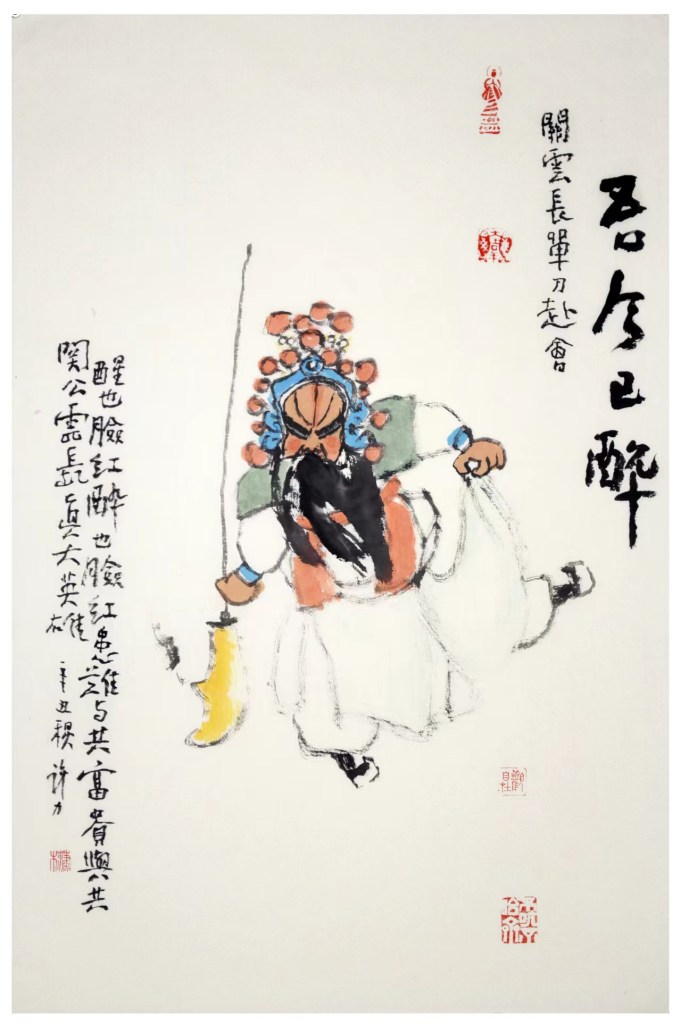 吾今已醉
關雲長單刀赴會
醒也臉紅醉也臉紅患難与共富貴與共
関公雲長真大英雄 辛丑 許力